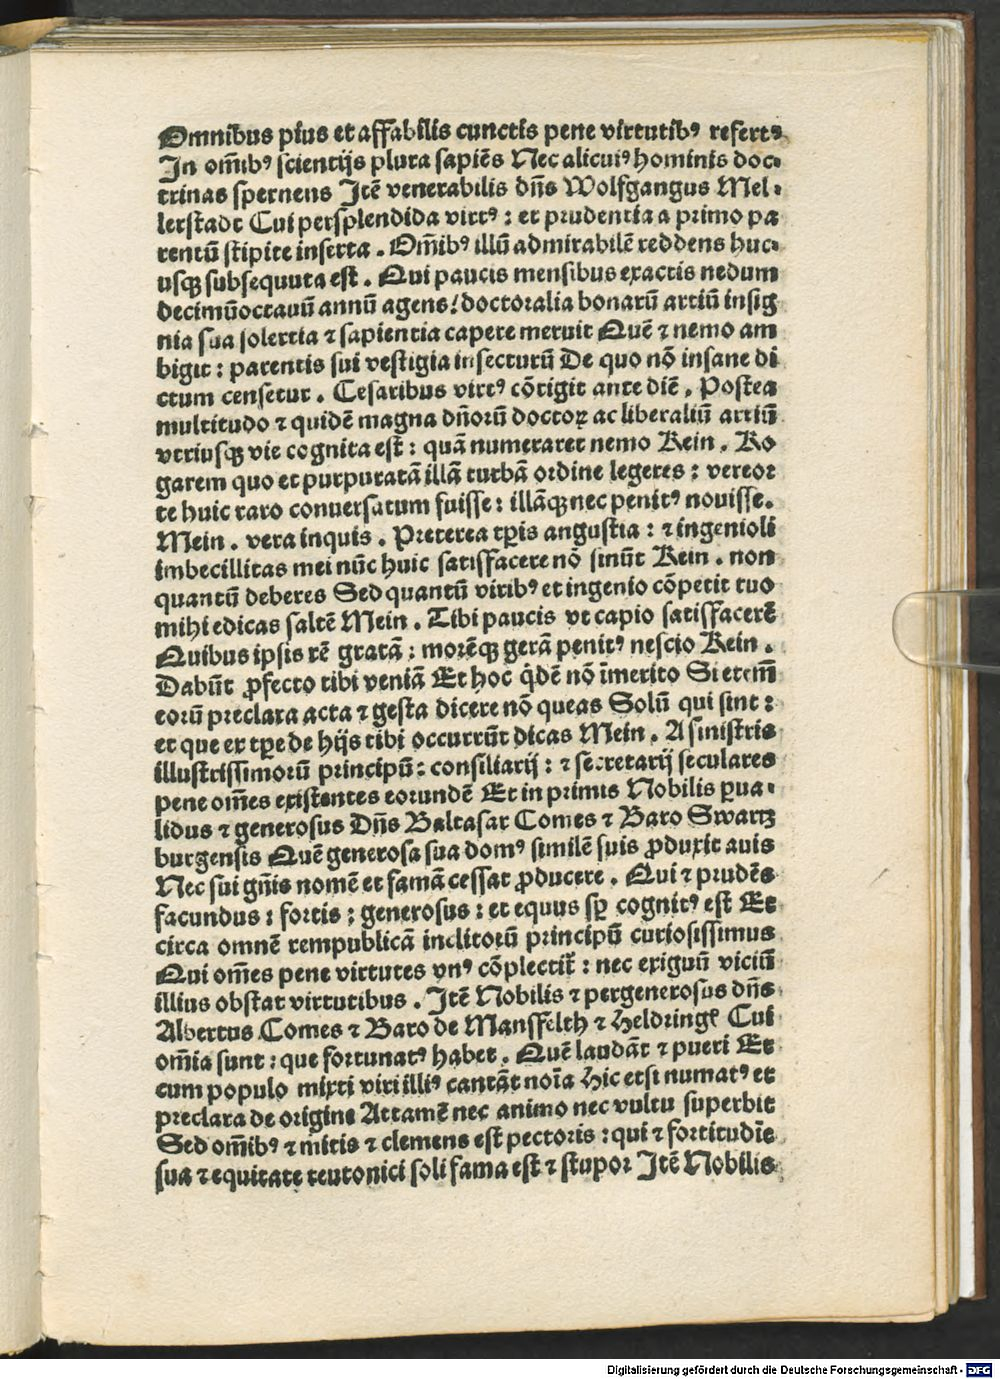 Omnibus pius et affabilis cunctis pene virtutibꝰ refertꝰ
In om̄ibꝰ scientijs plura sapiēs Nec alicuiꝰ hominis doc⸗
trinas spernens Itē venerabilis dn̄s Wolfgangus Mel⸗
lerstadt Cui persplendida virtꝰ : et prudentia a primo pa
rentū stipite inserta . Om̄ibꝰ illū admirabilē reddens huc⸗
usqꝫ subsequuta est . Qui paucis mensibus exactis nedum
decimūoctauū annū agens / doctoralia bonarū artiū insig
nia sua solertia ⁊ sapientia capere meruit Quē ⁊ nemo am
bigit : parentis sui vestigia insecturū De quo nō insane di
ctum censetur . Cesaribus virtꝰ cōtigit ante diē . Postea
multitudo ⁊ quidē magna dn̄orū doctoꝝ ac liberaliū artiū
vtriusqꝫ vie cognita est : quā numeraret nemo Kein . Ro
garem quo et purpuratā illā turbā ordine legeres : vereor
te huic raro conuersatum fuisse : illāqꝫ nec penitꝰ nouisse.
Mein . vera inquis . Preterea tp̄is angustia : ⁊ ingenioli
imbecillitas mei nūc huic satisfacere nō sinūt Kein . non
quantū deberes Sed quantū viribꝰ et ingenio cōpetit tuo
mihi edicas saltē Mein . Tibi paucis vt capio satisfacerē
Quibus ipsis rē gratā : morēqꝫ gerā penitꝰ nescio Kein .
Dabūt ꝓfecto tibi veniā Et hoc q̇dē nō īmerito Si etem̄
eorū preclara acta ⁊ gesta dicere nō queas Solū qui sint :
et que ex tp̄e de hijs tibi occurrūt dicas Mein . A sinistris
illustrissimorū principū : consiliarij : ⁊ secretarij seculares
pene om̄es existentes eorundē Et in primis Nobilis p̄ua⸗
lidus ⁊ generosus Dn̄s Baltasar Comes ⁊ Baro Swartz
burgensis Quē generosa sua domꝰ similē suis ꝓduxit auis
Nec sui gn̄is nomē et famā cessat ꝓducere . Qui ⁊ prudēs
facundus : fortis : generosus : et equus sꝑ cognitꝰ est Et
circa omnē rempublicā inclitorū principū curiosissimus
Qui om̄es pene virtutes vnꝰ cōplectit᷑ : nec exiguū viciū
illius obstat virtutibus . Itē Nobilis ⁊ pergenerosus dn̄s
Albertus Comes ⁊ Baro de Mansfelth ⁊ Heldringꝭ Cui
om̄ia sunt : que fortunatꝰ habet . Quē laudāt ⁊ pueri Et
cum populo mixti viri illiꝰ cantāt noīa Hic etsi numatꝰ et
preclara de origine Attamē nec animo nec vultu superbit
Sed om̄ibꝰ ⁊ mitis ⁊ clemens est pectoris : qui ⁊ fortitudīe
sua ⁊ equitate teutonici soli fama est ⁊ stupor Itē Nobilis
Digitalisierung gefördert durch die Deutsche Forschungsgemeinschaft - DFG